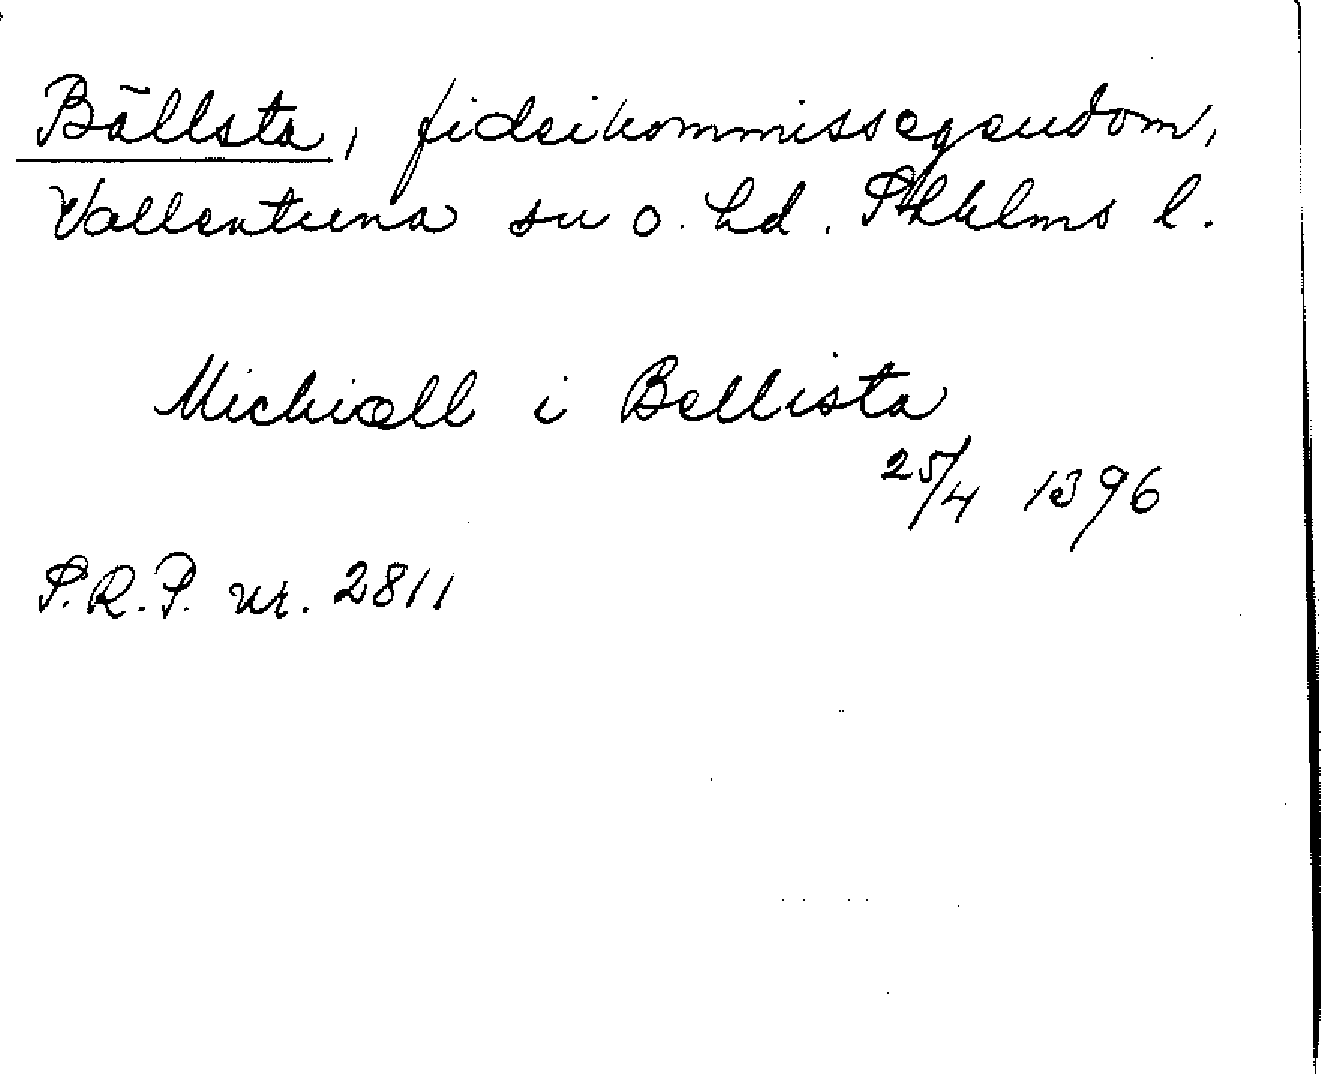 Bällsta, fideikommissegendom,
Vallentuna sn o. hd. Sthlms l.
Michiæll i Bellista
25/4 1396
S.R.P. nr. 2811